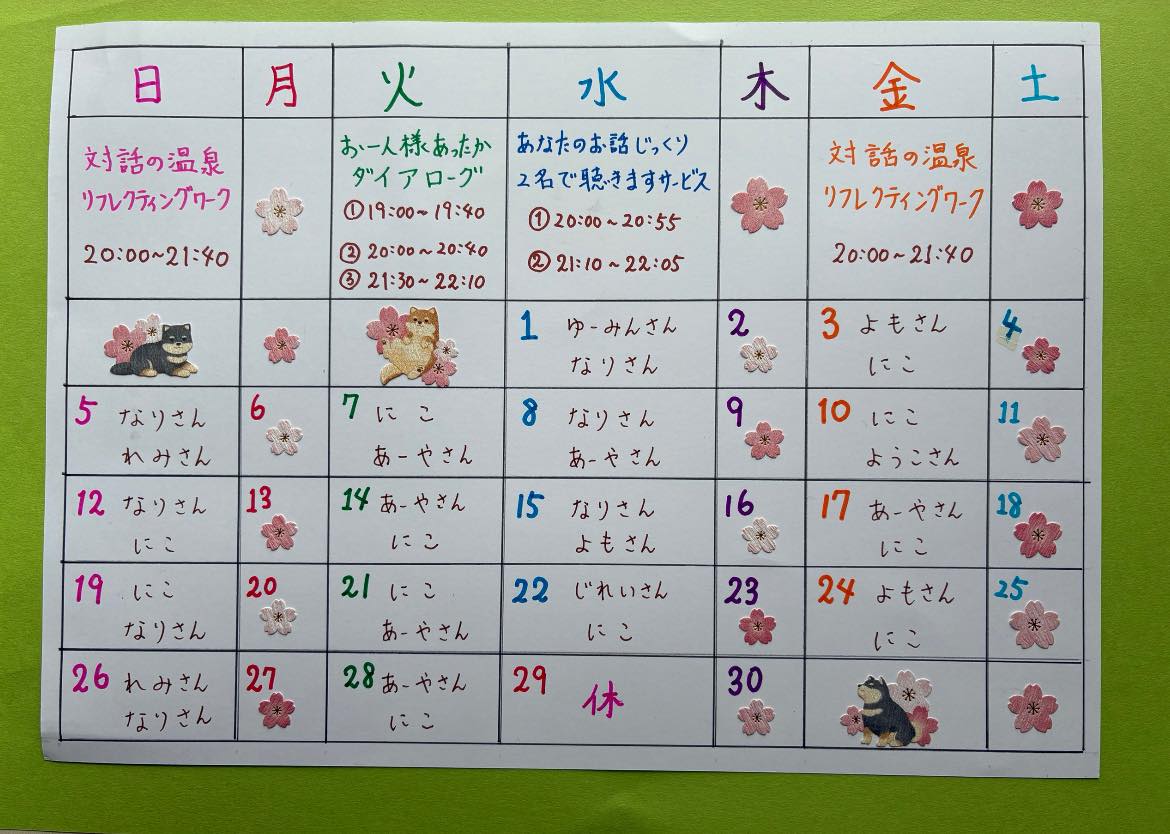 日 月 火 水 木 金 土
対話の温泉
リフレクティングワーク
20:00~21:40
お一人様あったか
ダイアローグ
①19:00~19:40
②20:00~20:40
③21:30~22:10
あなたのお話じっくり
2名で聴きますサービス
①20:00~20:55
②21:10~22:05
対話の温泉
リフレクティングワーク
20:00~21:40
1 ゆーみんさん
なりさん
2
3 よもさん
にこ
4
5 なりさん
れみさん
6
7 にこ
あーやさん
8 なりさん
あーやさん
9
10 にこ
ようこさん
11
12 なりさん
にこ
13
14 あーやさん
にこ
15 なりさん
よもさん
16
17 あーやさん
にこ
18
19 にこ
なりさん
20
21 にこ
あーやさん
22 じれいさん
にこ
23
24 よもさん
にこ
25
26 れみさん
なりさん
27
28 あーやさん
にこ
29 休
30